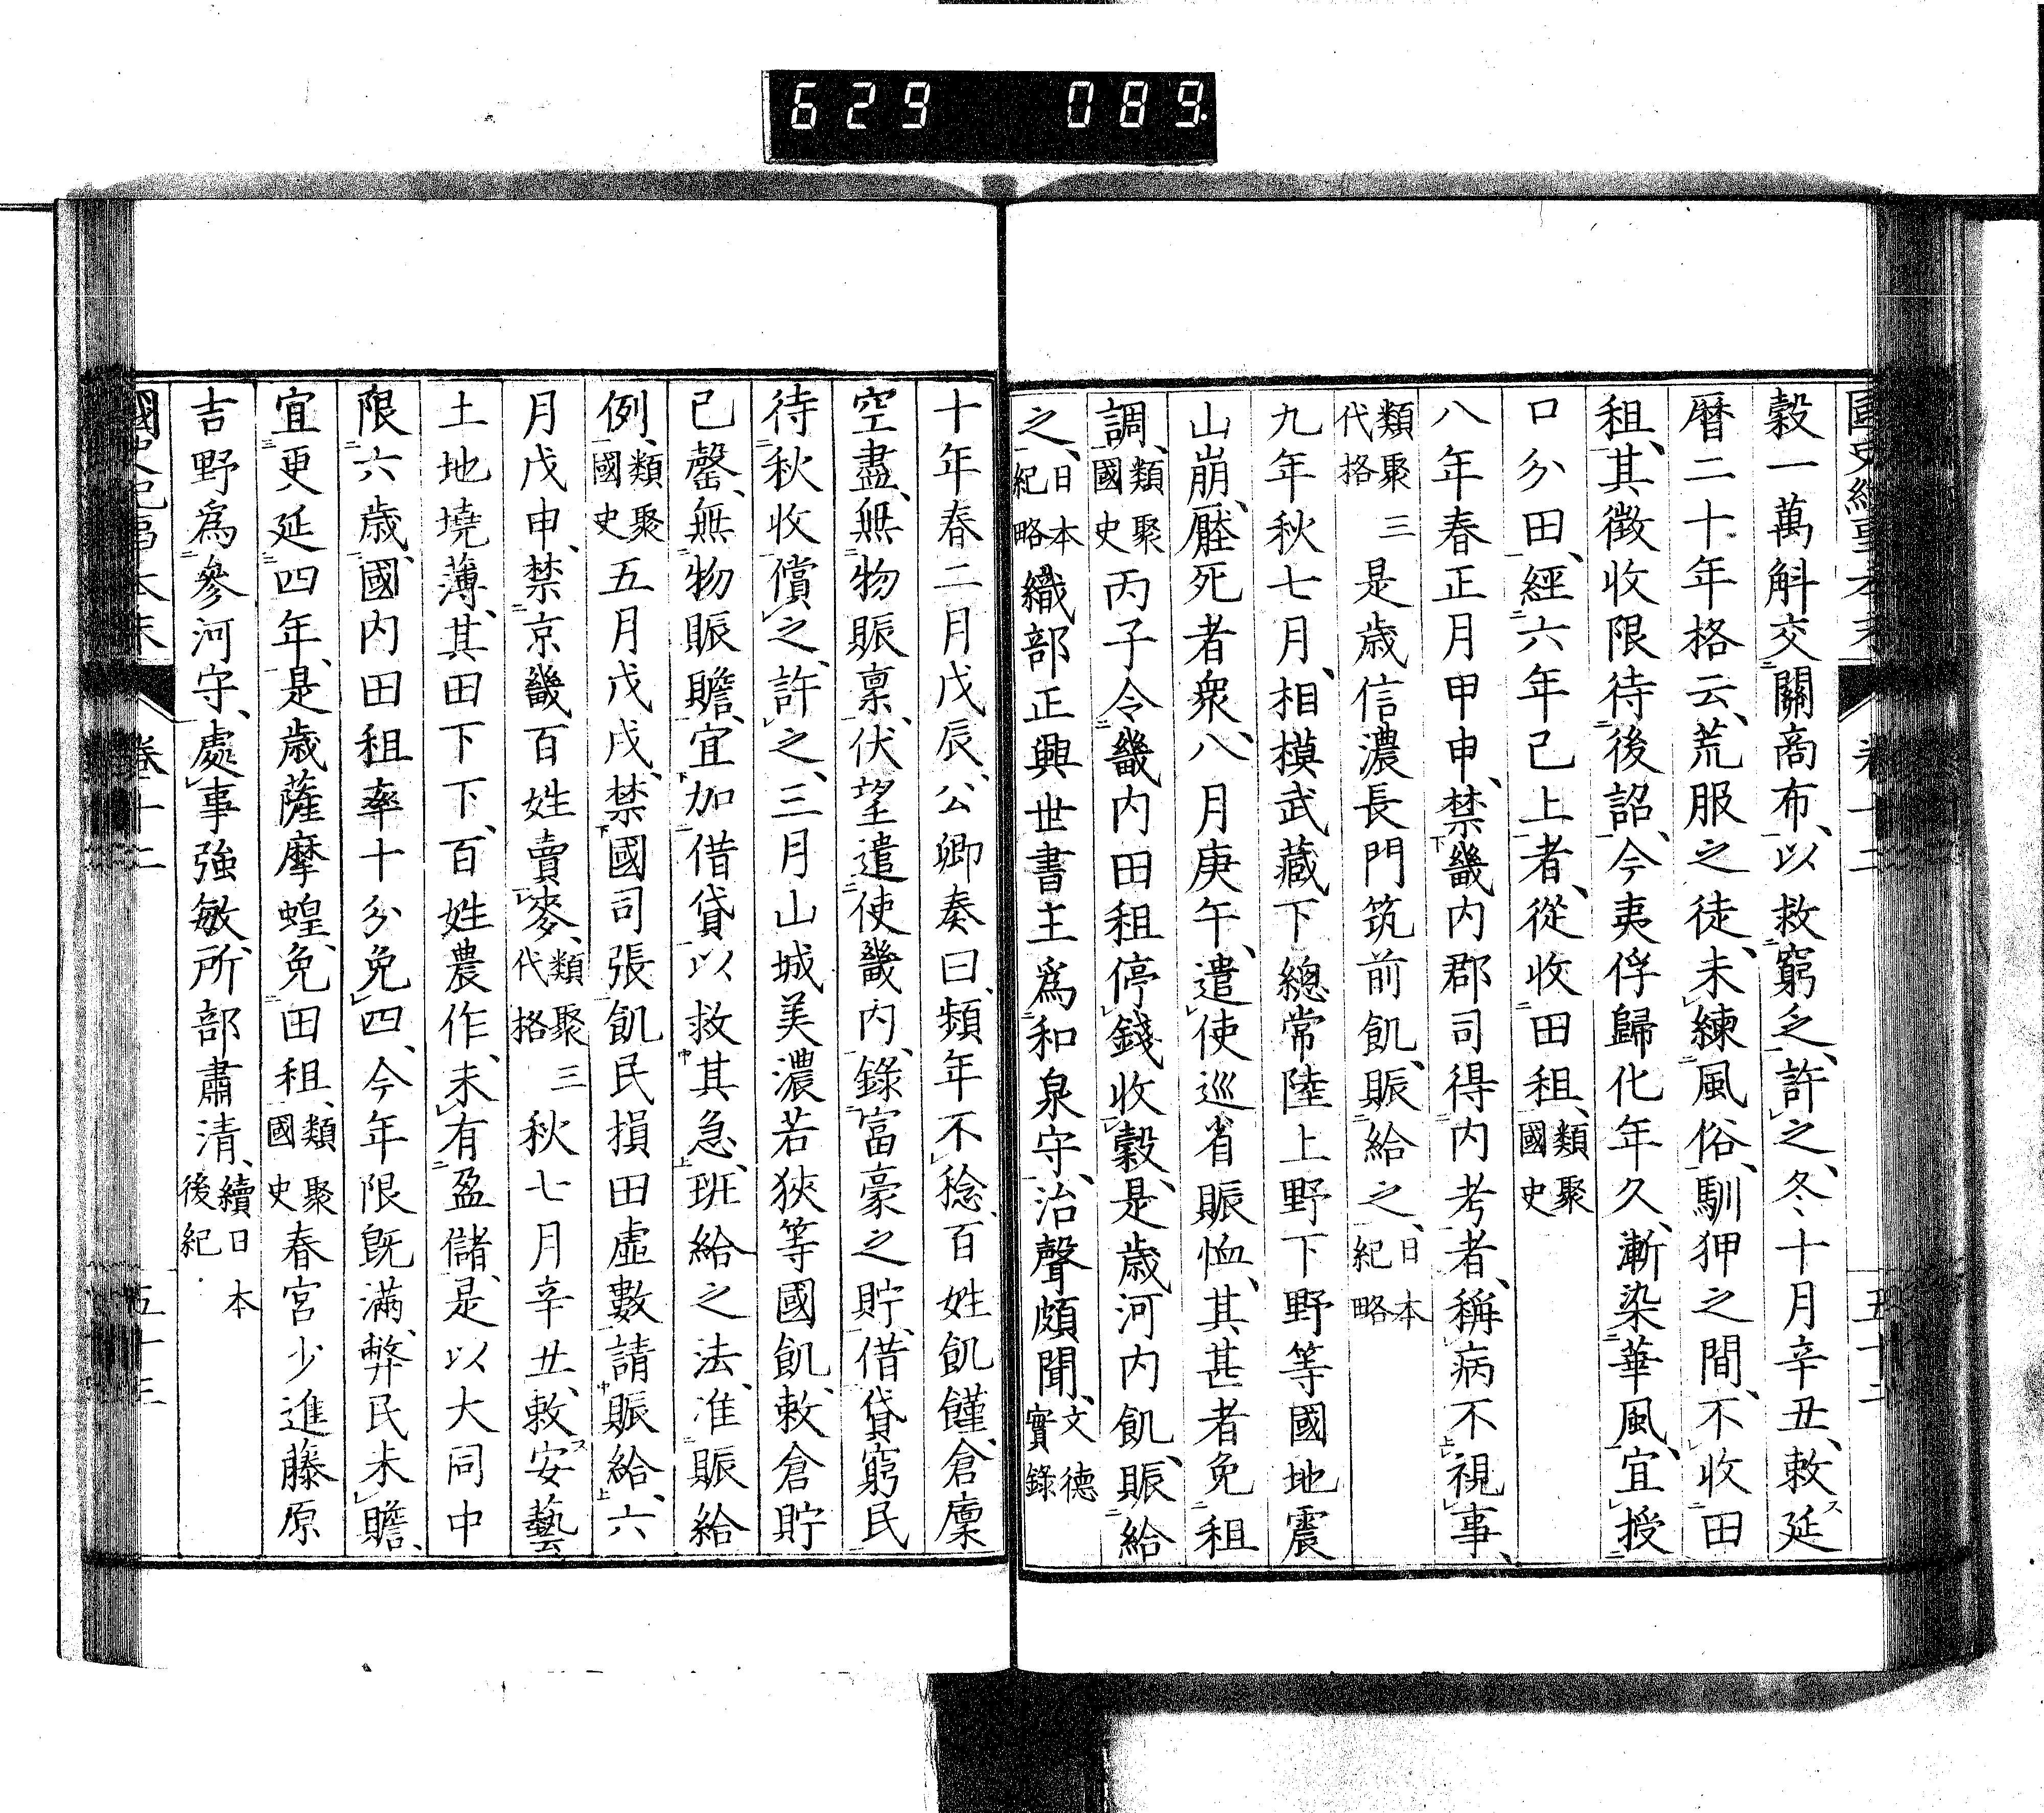 629 089
國史紀事本末 卷十二 五十二
穀一萬斛交關商布、以救窮乏、許之、冬十月辛丑、敕延
曆二十年格云、荒服之徒、未練風俗、馴狎之間、不收田
租、其徵收限待後詔、今夷俘歸化年久、漸染華風、宜授
口分田、經六年己上者、從收田租、類聚國史
八年春正月甲申、禁畿内郡司得内考者、稱病不視事、
類聚三代格 是歳信濃長門筑前飢、賑給之、日本紀略
九年秋七月、相模武藏下總常陸上野下野等國地震
山崩、壓死者衆、八月庚午、遣使巡省賑恤、其甚者免租
調、類聚國史 丙子令畿内田租停錢收穀、是歳河内飢、賑給
之、日本紀略 織部正興世書主爲和泉守、治聲頗聞、文德實錄
十年春二月戊辰、公卿奏曰、頻年不稔、百姓飢饉、倉廩
空盡、無物賑稟、伏望遣使畿内、錄富豪之貯、借貸窮民
待秋收償之、許之、三月山城美濃若狹等國飢、敕倉貯
已罄、無物賑贍、宜加借貸以救其急、班給之法、准賑給
例、類聚國史 五月戊戌、禁國司張飢民損田虛數請賑給、六
月戊申、禁京畿百姓賣麥、類聚三代格 秋七月辛丑、敕、安藝
土地墝薄、其田下下、百姓農作、未有盈儲、是以大同中
限六歳、國内田租率十分免四、今年限既滿、弊民未贍、
宜更延四年、是歳薩摩蝗、免田租、類聚國史 春宮少進藤原
吉野爲參河守、處事強敏、所部肅清、續日本後紀
國史紀事本末 卷十二 五十三